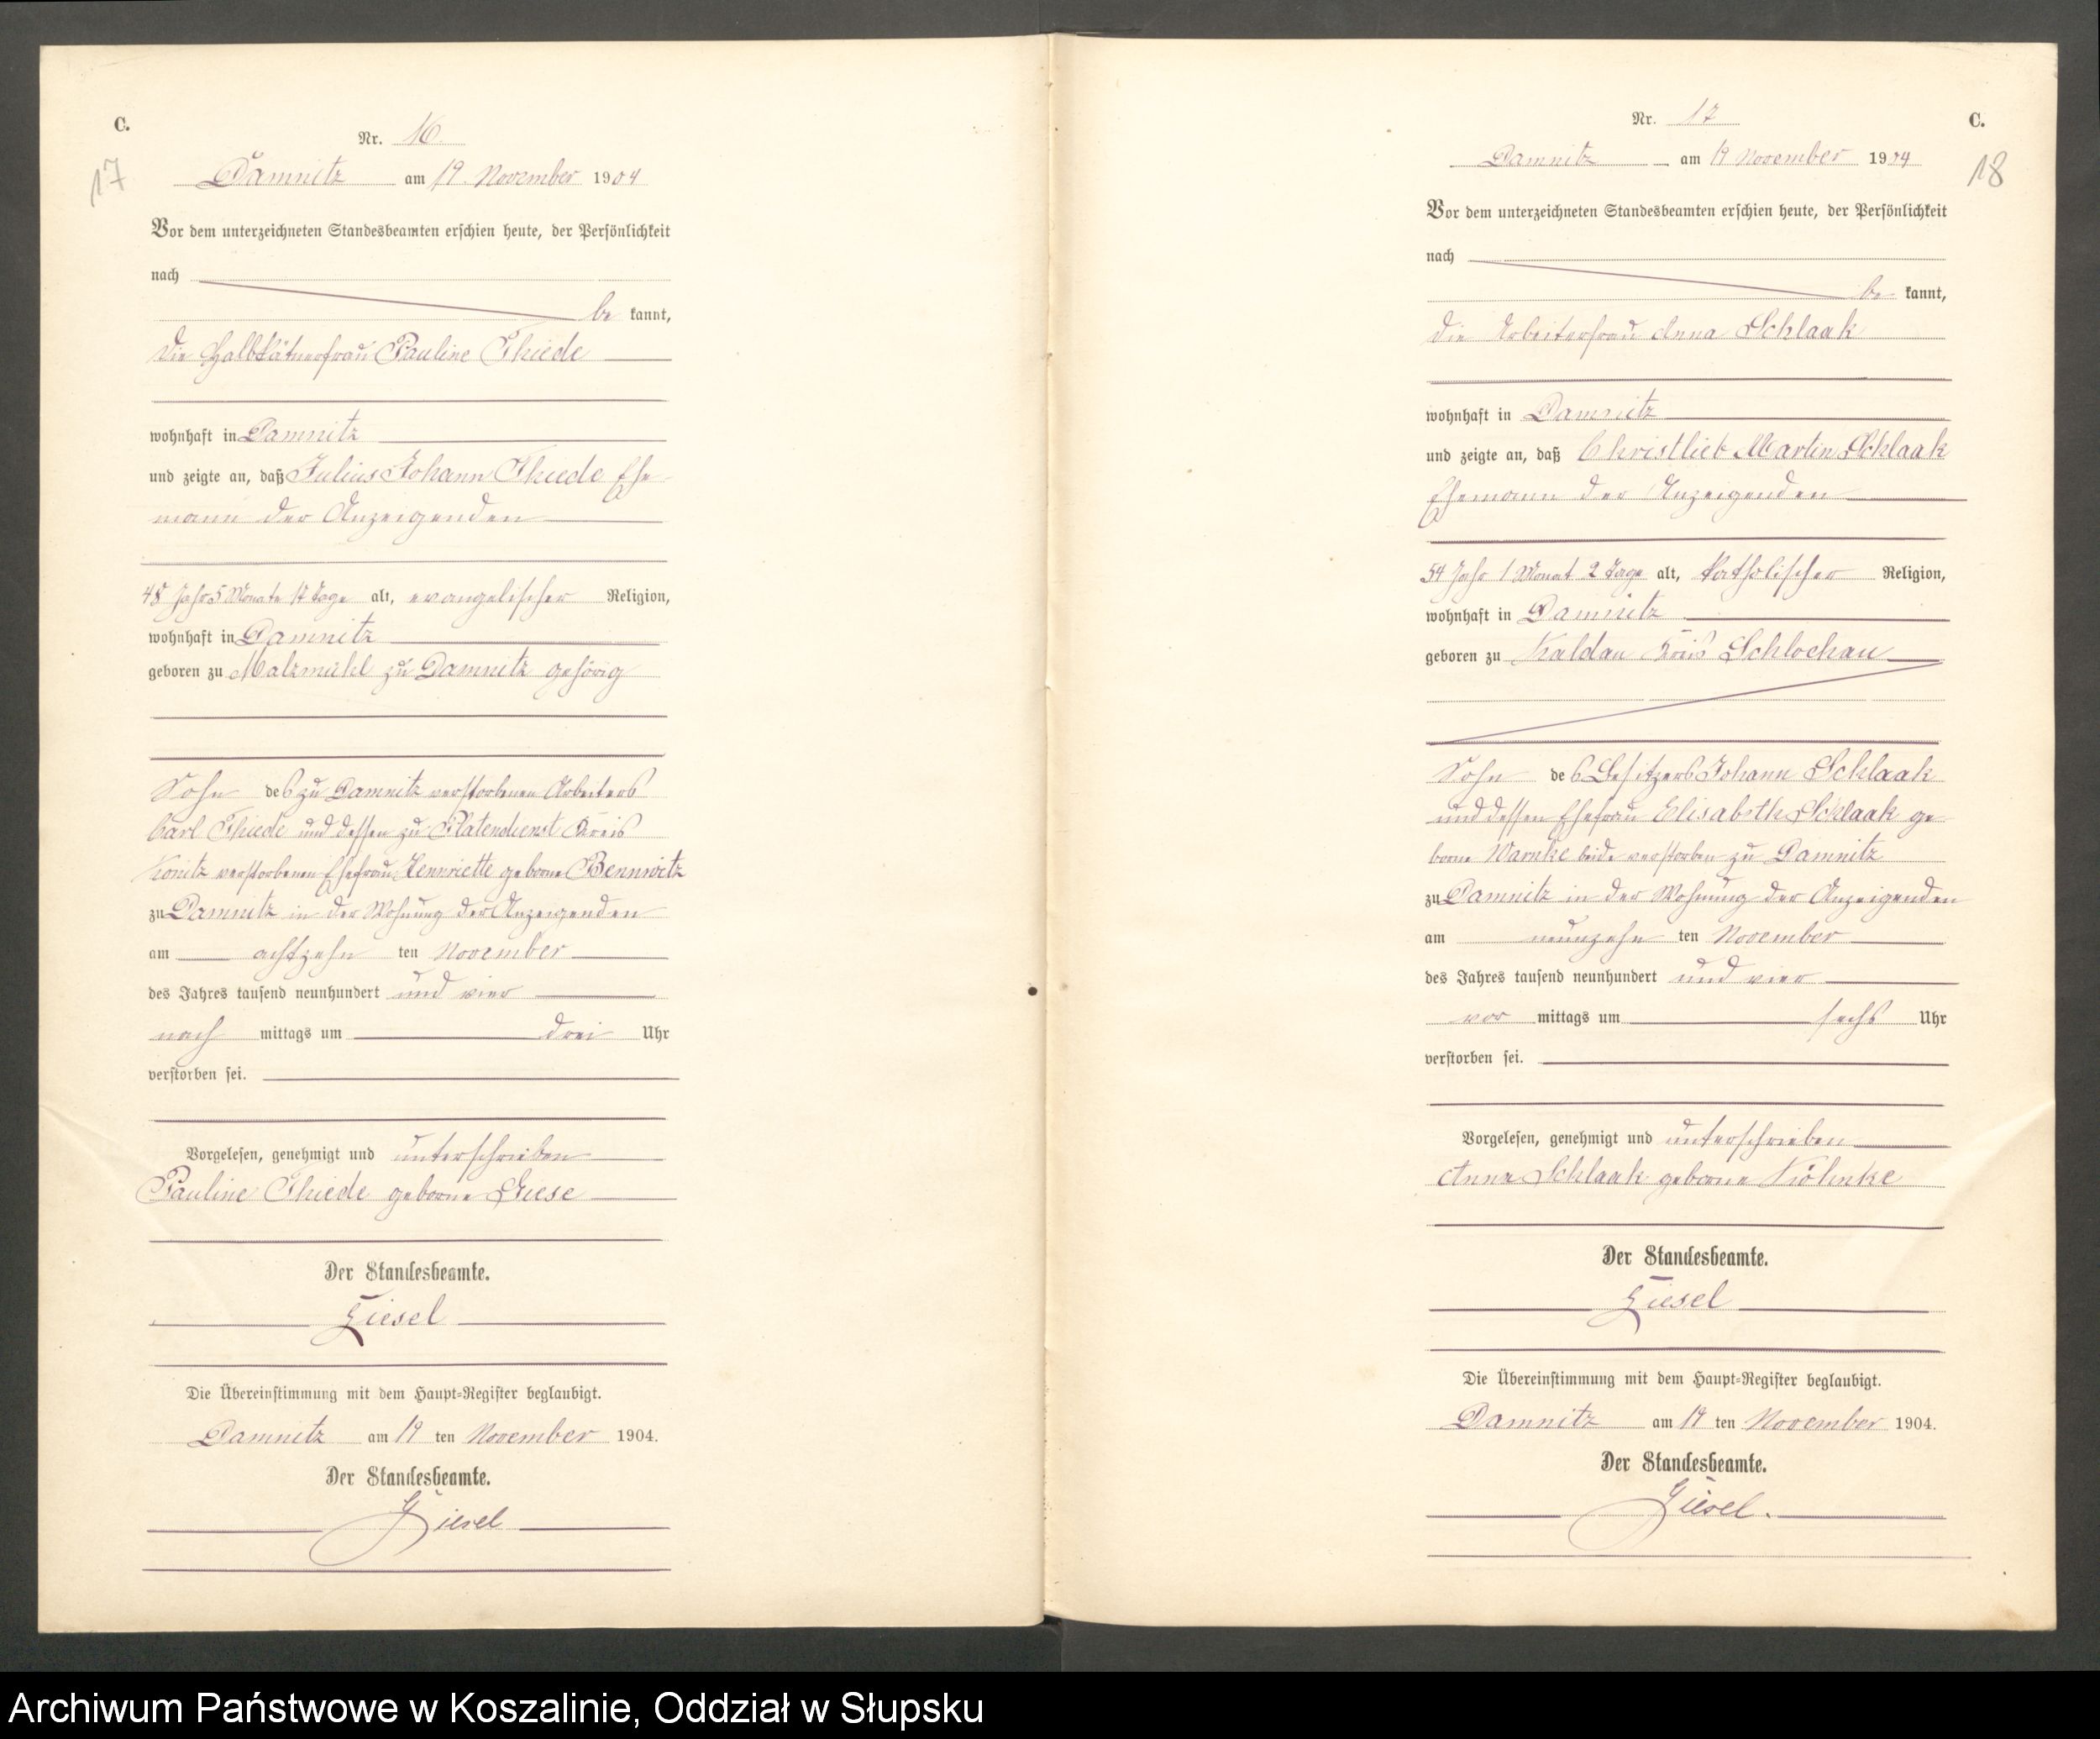 C.
17
Nr. 16.
Damnitz am 19. November 1904
Vor dem unterzeichneten Standesbeamten erschien heute, der Persönlichkeit
nach
be kannt,
die Halbkätnerfrau Pauline Thiede
wohnhaft in Damnitz
und zeigte an, daß Julius Johann Thiede Ehe-
mann der Anzeigenden
48 Jahr 5 Monate 17 Tage alt, evangelischer Religion,
wohnhaft in Damnitz
geboren zu Malzmühl zu Damnitz gehörig
Sohn des zu Damnitz verstorbenen Arbeiters
Carl Thiede und dessen zu Platendienst Kreis
Konitz verstorbenen Ehefrau Hennriette geborne Bennwitz
zu Damnitz in der Wohnung der Anzeigenden
am achtzehn ten November
des Jahres tausend neunhundert und vier
nach mittags um drei Uhr
verstorben sei.
Vorgelesen, genehmigt und unterschrieben
Pauline Thiede geborne Giese
Der Standesbeamte.
Giesel
Die Übereinstimmung mit dem Haupt-Register beglaubigt.
Damnitz am 19 ten November 1904.
Der Standesbeamte.
Giesel
C.
18
Nr. 17
Damnitz am 19 November 1904
Vor dem unterzeichneten Standesbeamten erschien heute, der Persönlichkeit
nach
be kannt,
die Arbeiterfrau Anna Schlaak
wohnhaft in Damnitz
und zeigte an, daß Christlieb Martin Schlaak
Ehemann der Anzeigenden
54 Jahr 1 Monat 2 Tage alt, katholischer Religion,
wohnhaft in Damnitz
geboren zu Kaldau Kreis Schlochau
Sohn des Besitzers Johann Schlaak
und dessen Ehefrau Elisabeth Schlaak ge-
borne Warnke beide verstorben zu Damnitz
zu Damnitz in der Wohnung der Anzeigenden
am neunzehn ten November
des Jahres tausend neunhundert und vier
vor mittags um sechs Uhr
verstorben sei.
Vorgelesen, genehmigt und unterschrieben
Anna Schlaak geborne Köhnke
Der Standesbeamte.
Giesel
Die Übereinstimmung mit dem Haupt-Register beglaubigt.
Damnitz am 19 ten November 1904.
Der Standesbeamte.
Giesel.
Archiwum Państwowe w Koszalinie, Oddział w Słupsku